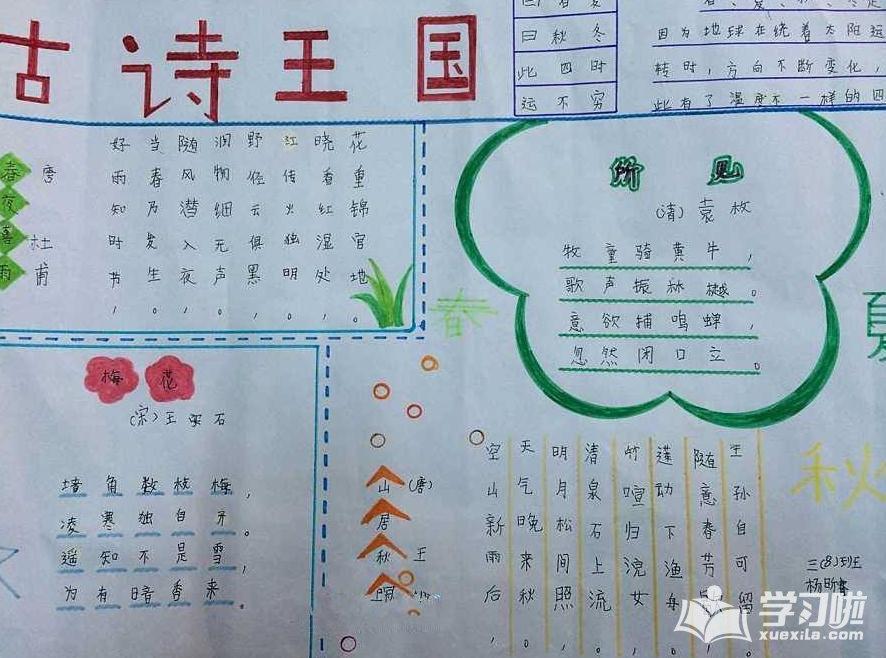 古诗王国
曰秋冬
此四时
运不穷
因为地球在绕着太阳运
转时，方向不断变化，
此有了温度不一样的四
春夜喜雨
唐 杜甫
好雨知时节，
当春乃发生。
随风潜入夜，
润物细无声。
野径云俱黑，
红传火独明。
晓看红湿处，
花重锦官地。
所见
（清）袁枚
牧童骑黄牛，
歌声振林樾。
意欲捕鸣蝉，
忽然闭口立。
春
夏
秋
梅花
（宋）王安石
墙角数枝梅，
凌寒独自开。
遥知不是雪，
为有暗香来。
山居秋暝
（唐）王维
空山新雨后，
天气晚来秋。
明月松间照，
清泉石上流。
竹喧归浣女，
莲动下渔舟。
随意春芳歇，
王孙自可留。
三（8）班
学习啦
xuexila.com